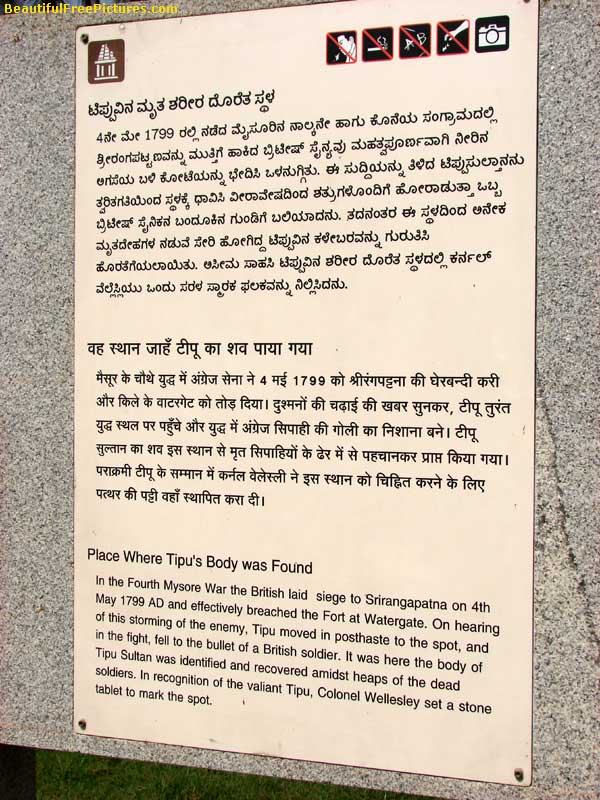 BeautifulFreePictures.com
ಟಿಪ್ಪುವಿನ ಮೃತ ಶರೀರ ದೊರೆತ ಸ್ಥಳ
4ನೇ ಮೇ 1799 ರಲ್ಲಿ ನಡೆದ ಮೈಸೂರಿನ ನಾಲ್ಕನೇ ಹಾಗು ಕೊನೆಯ ಸಂಗ್ರಾಮದಲ್ಲಿ
ಶ್ರೀರಂಗಪಟ್ಟಣವನ್ನು ಮುತ್ತಿಗೆ ಹಾಕಿದ ಬ್ರಿಟೀಷ್ ಸೈನ್ಯವು ಮಹತ್ವಪೂರ್ಣವಾಗಿ ನೀರಿನ
ಅಗಸೆಯ ಬಳಿ ಕೋಟೆಯನ್ನು ಭೇದಿಸಿ ಒಳನುಗ್ಗಿತು. ಈ ಸುದ್ದಿಯನ್ನು ತಿಳಿದ ಟಿಪ್ಪುಸುಲ್ತಾನನು
ತ್ವರಿತಗತಿಯಿಂದ ಸ್ಥಳಕ್ಕೆ ಧಾವಿಸಿ ವೀರಾವೇಷದಿಂದ ಶತ್ರುಗಳೊಂದಿಗೆ ಹೋರಾಡುತ್ತಾ ಒಬ್ಬ
ಬ್ರಿಟೀಷ್ ಸೈನಿಕನ ಬಂದೂಕಿನ ಗುಂಡಿಗೆ ಬಲಿಯಾದನು. ತದನಂತರ ಈ ಸ್ಥಳದಿಂದ ಅನೇಕ
ಮೃತದೇಹಗಳ ನಡುವೆ ಸೇರಿ ಹೋಗಿದ್ದ ಟಿಪ್ಪುವಿನ ಕಳೇಬರವನ್ನು ಗುರುತಿಸಿ
ಹೊರತೆಗೆಯಲಾಯಿತು. ಅಸೀಮ ಸಾಹಸಿ ಟಿಪ್ಪುವಿನ ಶರೀರ ದೊರೆತ ಸ್ಥಳದಲ್ಲಿ ಕರ್ನಲ್
ವೆಲ್ಲೆಸ್ಲಿಯು ಒಂದು ಸರಳ ಸ್ಮಾರಕ ಫಲಕವನ್ನು ನಿಲ್ಲಿಸಿದನು.
वह स्थान जाहँ टीपू का शव पाया गया
मैसूर के चौथे युद्ध में अंग्रेज सेना ने 4 मई 1799 को श्रीरंगपट्टना की घेरबन्दी करी
और किले के वाटरगेट को तोड़ दिया। दुश्मनों की चढ़ाई की खबर सुनकर, टीपू तुरंत
युद्ध स्थल पर पहुँचे और युद्ध में अंग्रेज सिपाही की गोली का निशाना बने। टीपू
सुल्तान का शव इस स्थान से मृत सिपाहियों के ढेर में से पहचानकर प्राप्त किया गया।
पराक्रमी टीपू के सम्मान में कर्नल वेलेस्ली ने इस स्थान को चिह्नित करने के लिए
पत्थर की पट्टी वहाँ स्थापित करा दी।
Place Where Tipu's Body was Found
In the Fourth Mysore War the British laid siege to Srirangapatna on 4th
May 1799 AD and effectively breached the Fort at Watergate. On hearing
of this storming of the enemy, Tipu moved in posthaste to the spot, and
in the fight, fell to the bullet of a British soldier. It was here the body of
Tipu Sultan was identified and recovered amidst heaps of the dead
soldiers. In recognition of the valiant Tipu, Colonel Wellesley set a stone
tablet to mark the spot.